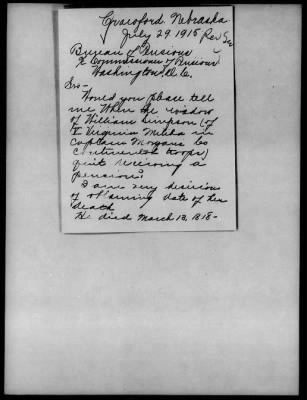 Crawford Nebraska
July 29 1915 Rev
Bureau of Pensions
% Commissioner of Pensions
Washington, D.C.
Sirs-
Would you please tell
me when the widow
of William Simpson (of
Virginia Militia in
Captain Morgans Co
Continental troops)
quit receiving a
pension?
I am very desirous
of obtaining date of her
death
He died March 13, 1818-